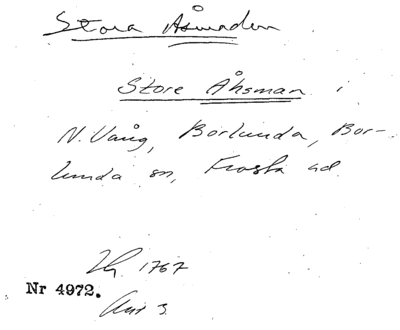 Stora Åsmaden
Store Åhsman i
N. Vång, Borlunda, Bor-
lunda sn, Frosta hd
1767
Nr 4972.
3.